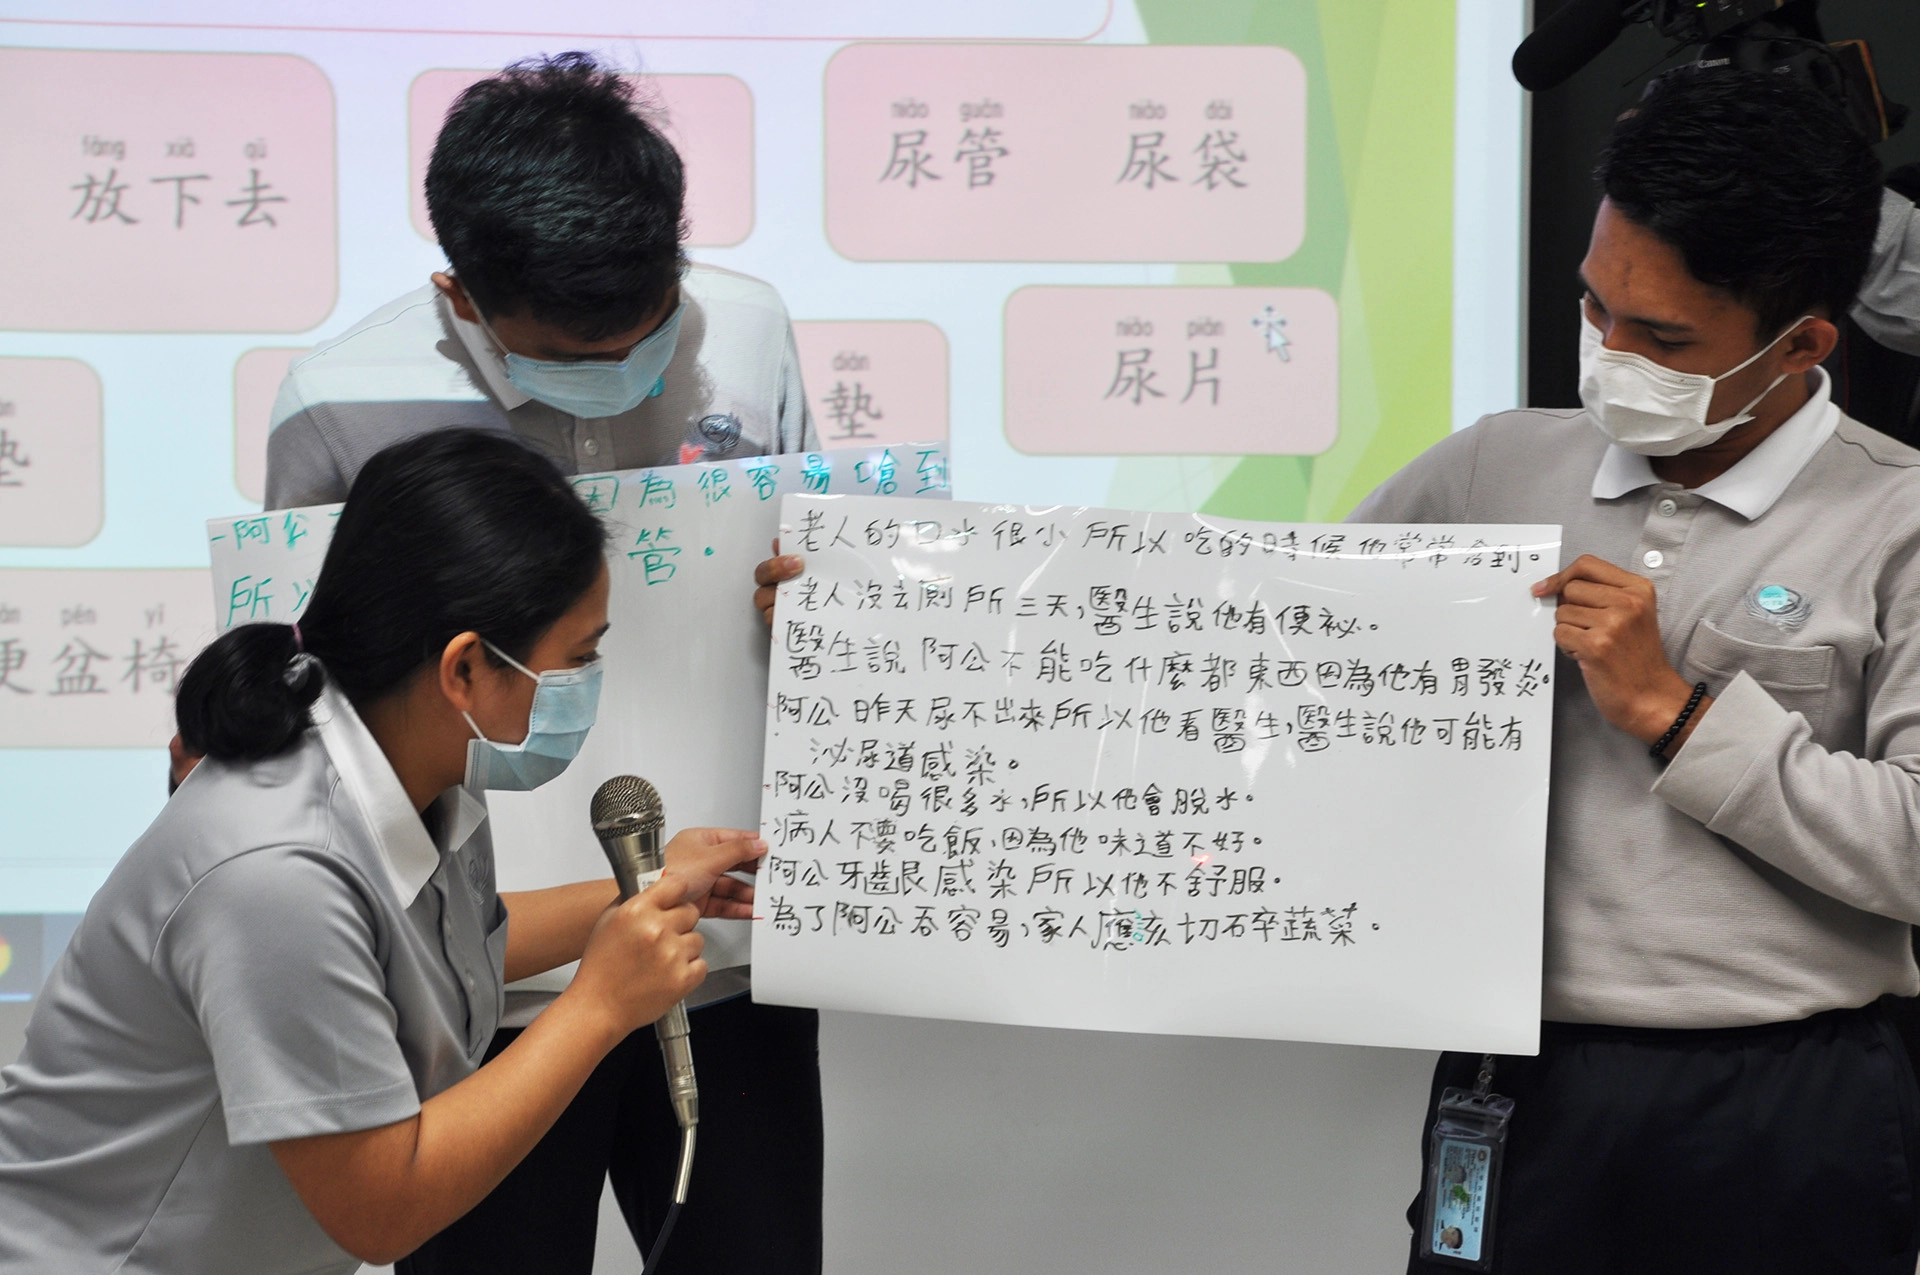 fàng xià qù
放下去
niào guǎn niào dài
尿管 尿袋
niào piàn
尿片
diàn
墊
墊
pén yǐ
便盆椅
Canon
-阿公
因為很容易嗆到
所以
管。
-老人的口水很小所以吃的時候他常常嗆到。
-老人沒去廁所三天,醫生說他有便祕。
醫生說阿公不能吃什麼都東西因為他有胃發炎。
-阿公昨天尿不出來所以他看醫生,醫生說他可能有
泌尿道感染。
-阿公沒喝很多水,所以他會脫水。
-病人不要吃飯,因為他味道不好。
-阿公牙齦感染所以他不舒服。
-為了阿公吞容易,家人應該切碎蔬菜。